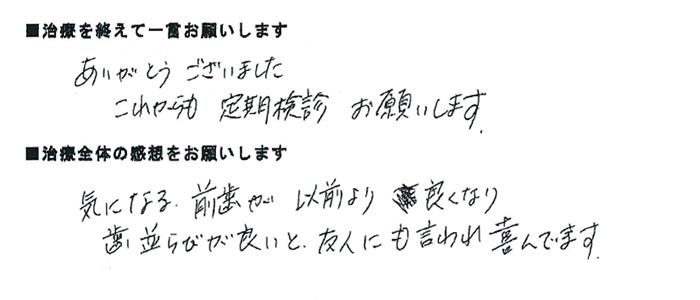 ■治療を終えて一言お願いします
ありがとうございました
これからも 定期検診 お願いします.
■治療全体の感想をお願いします
気になる. 前歯が 以前より 良くなり
歯並らびが良いと. 友人にも言われ 喜んでます.